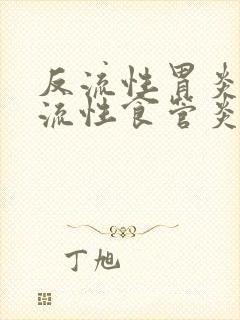 反流性胃炎
流性食管炎
丁旭